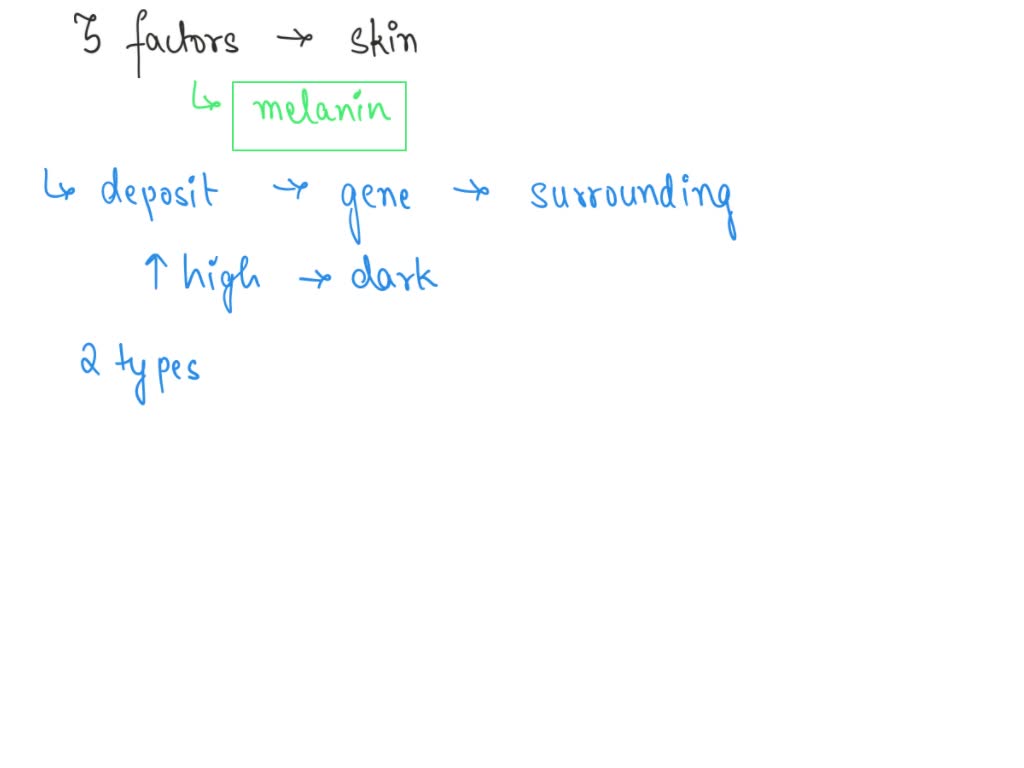 3 factors → skin
↳ melanin
↳ deposit → gene → surrounding
↑ high → dark
2 types